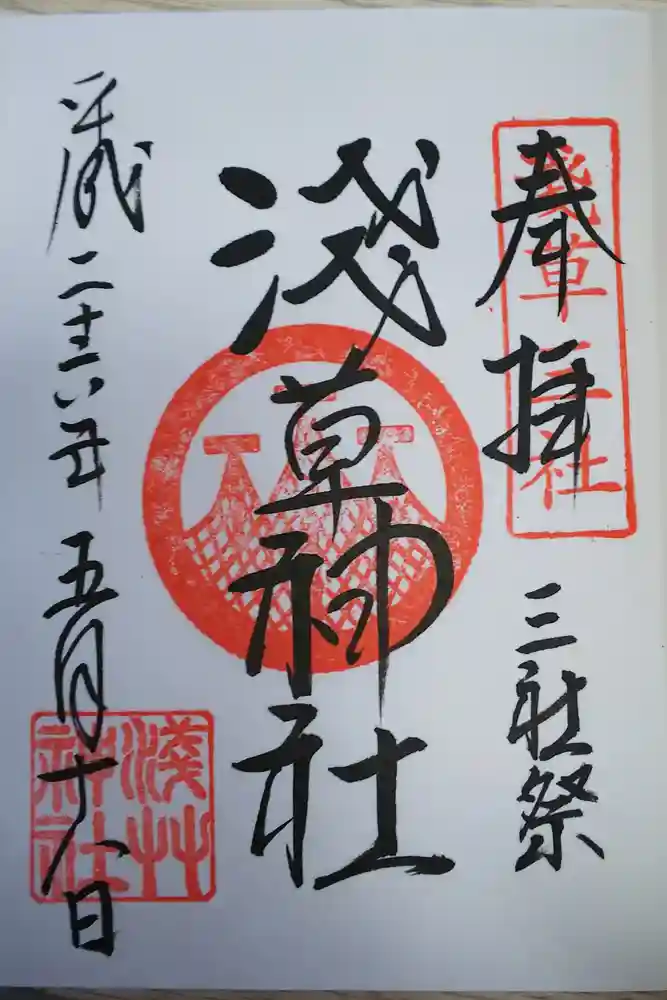 奉拝
淺草三社
三社祭
淺草神社
平成二十六年五月十八日
淺艸
神社